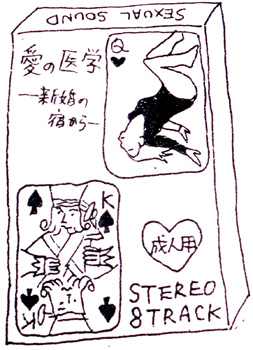 SEXUAL SOUND
愛の医学
―新婚の
宿から―
Q
K
K
成人用
STEREO
8 TRACK